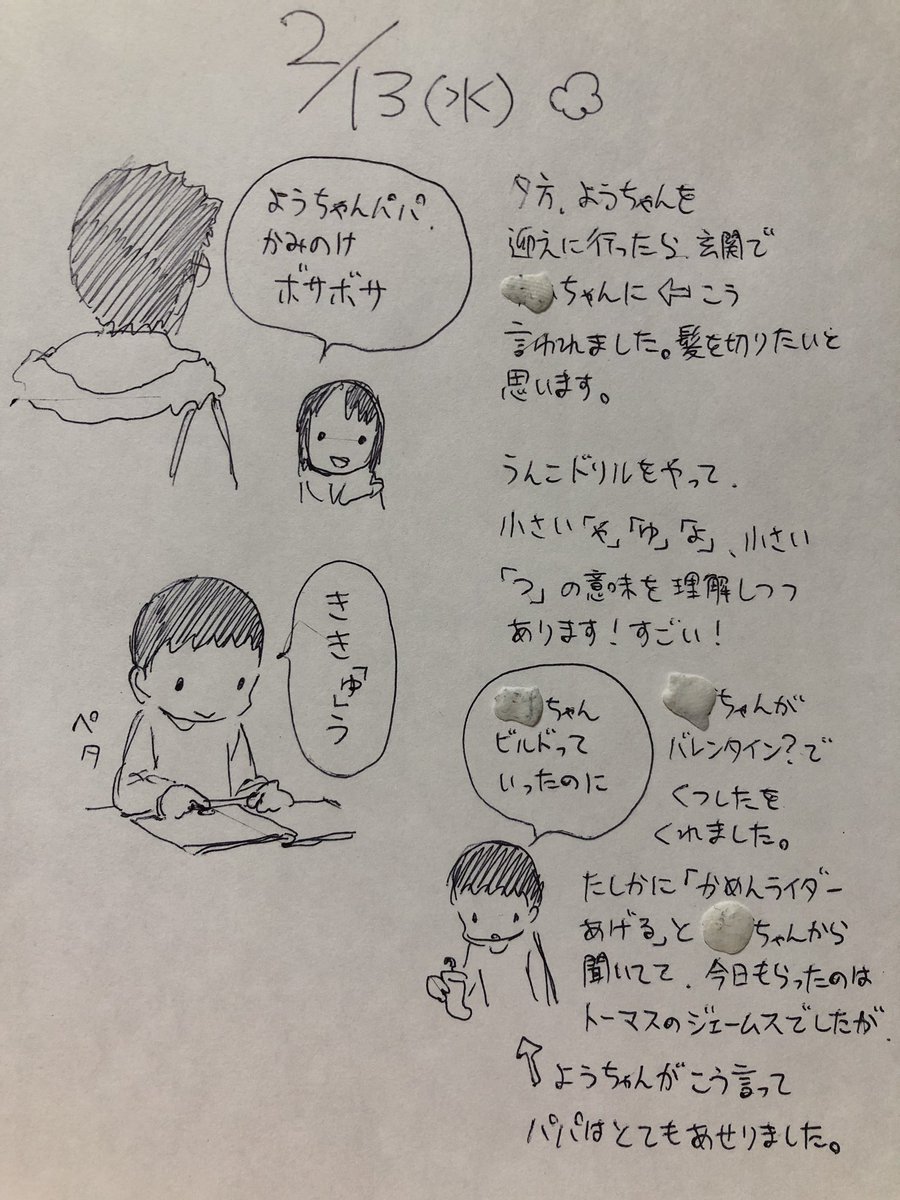 2/13(水)
ようちゃんパパ
かみのけ
ボサボサ
夕方、ようちゃんを
迎えに行ったら、玄関で
ちゃんに⇦こう
言われました。髪を切りたいと
思います。
うんこドリルをやって、
小さい「や」「ゆ」「よ」、小さい
「つ」の意味を理解しつつ
あります！すごい！
きき「ゆ」う
ペタ
ちゃん
ビルドって
いったのに
ちゃんが
バレンタイン？で
くつしたを
くれました。
たしかに「かめんライダー
あげる」とちゃんから
聞いてて、今日もらったのは
トーマスのジェームスでしたが、
⇧ようちゃんがこう言って
パパはとてもあせりました。